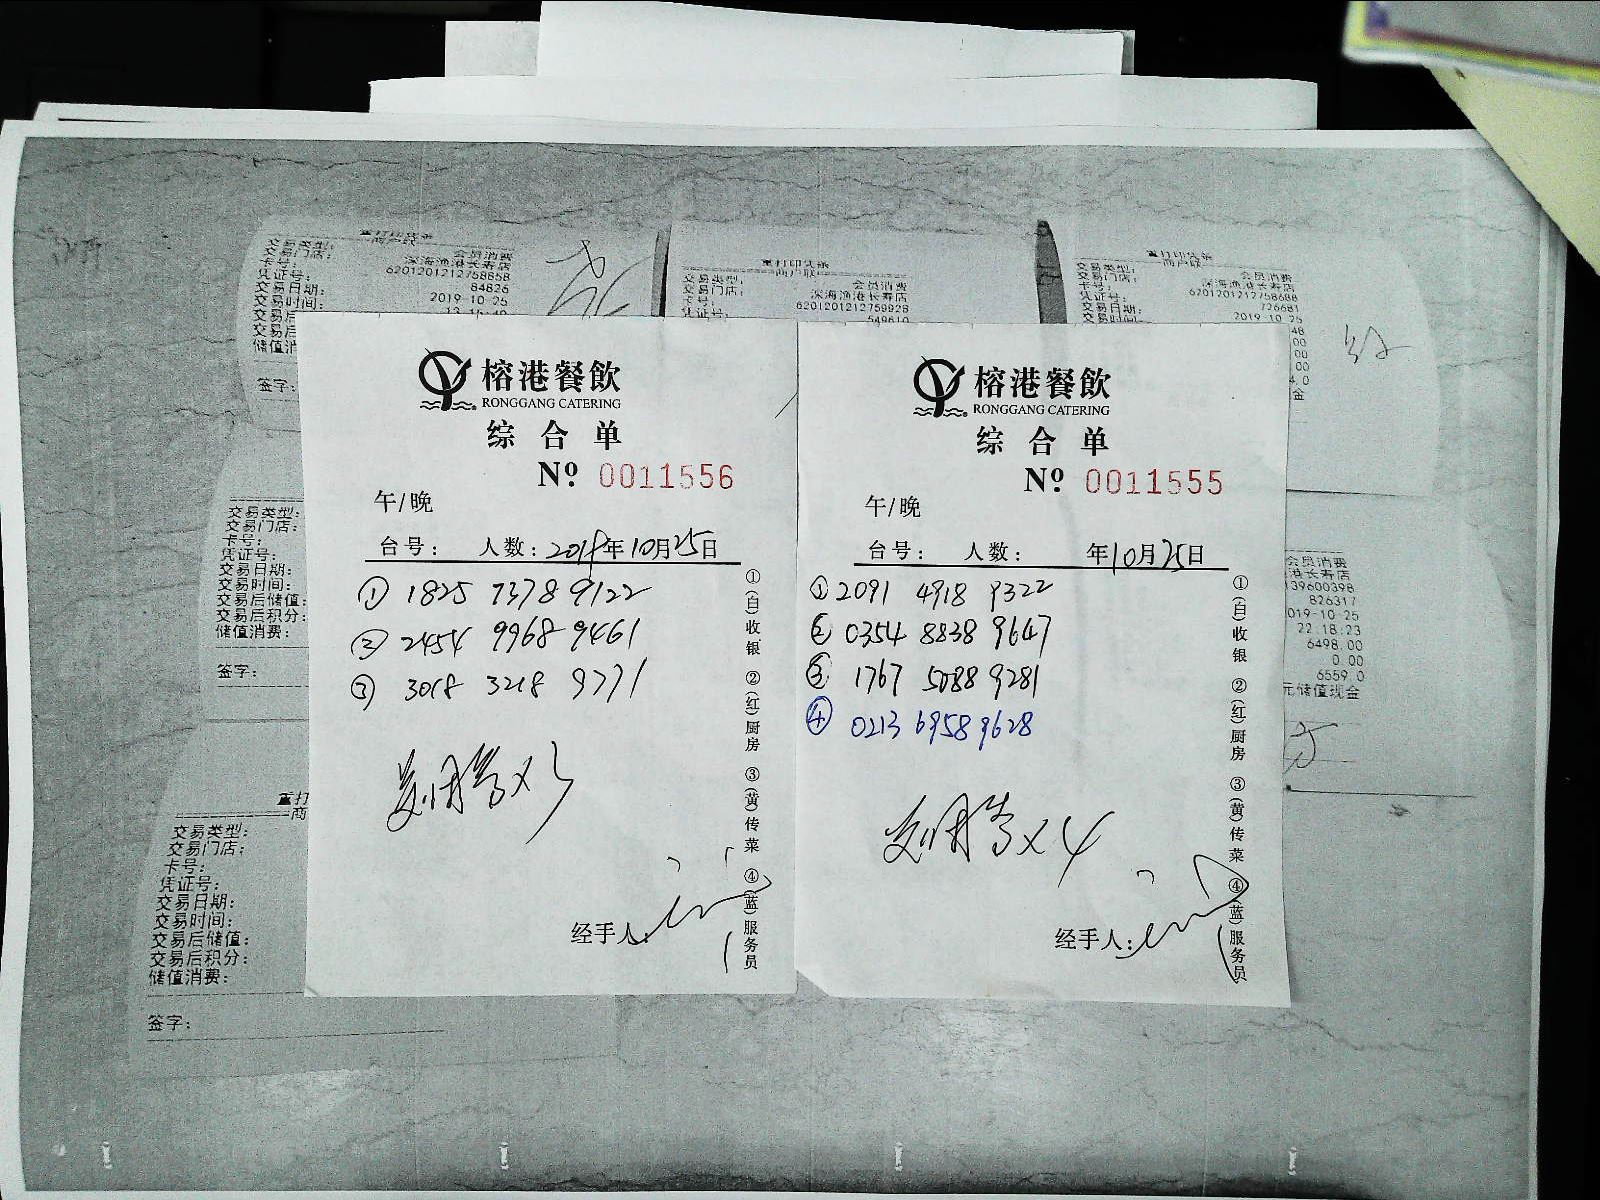 重打印凭条
商户联
交易类型: 会员消费
交易门店: 深海渔港长寿店
卡号: 6201201212758658
凭证号: 84826
交易日期: 2019-10-25
交易时间: 13:15:49
交易后
交易后
储值消
签字:
重打印凭条
商户联
交易类型: 会员消费
交易门店: 深海渔港长寿店
卡号: 6201201212759928
凭证号: 549610
重打印凭条
商户联
交易类型: 会员消费
交易门店: 深海渔港长寿店
卡号: 6201201212758688
凭证号: 726681
交易日期: 2019-10-25
交易时间: 48
00
00
4.0
金
榕港餐飲
RONGGANG CATERING
综合单
Nº 0011556
午/晚
台号: 人数: 2019年10月25日
① 1825 7378 9122
② 2454 9968 9461
③ 3018 3218 9771
经手人:
①(白)收银 ②(红)厨房 ③(黄)传菜 ④(蓝)服务员
榕港餐飲
RONGGANG CATERING
综合单
Nº 0011555
午/晚
台号: 人数: 年10月25日
① 2091 4918 9322
② 0354 8838 9647
③ 1767 5088 9281
④ 0213 6958 9628
经手人:
①(白)收银 ②(红)厨房 ③(黄)传菜 ④(蓝)服务员
交易类型:
交易门店:
卡号:
凭证号:
交易日期:
交易时间:
交易后储值:
交易后积分:
储值消费:
签字:
会员消费
港长寿店
139600398
826317
019-10-25
22:18:23
6498.00
0.00
6559.0
元储值现金
重打
商
交易类型:
交易门店:
卡号:
凭证号:
交易日期:
交易时间:
交易后储值:
交易后积分:
储值消费:
签字: